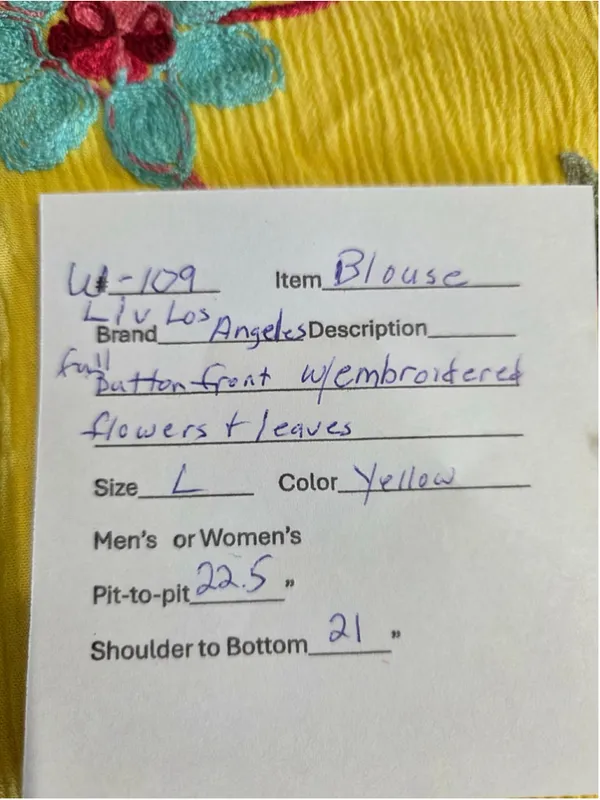 W-109 Item Blouse
Liv Los
Brand Angeles Description
full
button front w/embroidered
flowers + leaves
Size L Color Yellow
Men's or Women's
Pit-to-pit 22.5 "
Shoulder to Bottom 21 "